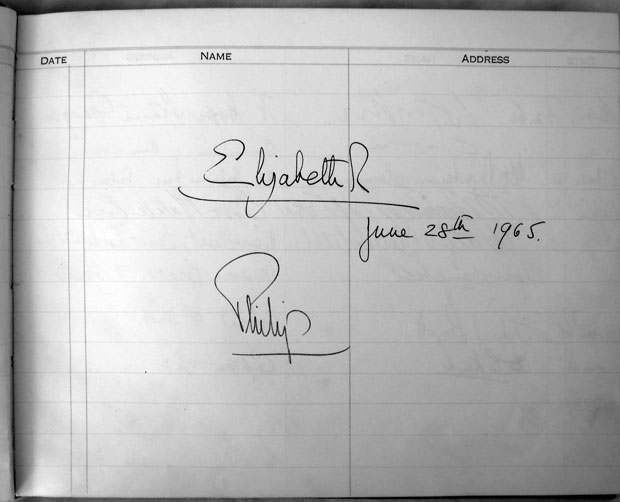 DATE NAME ADDRESS
Elizabeth R
June 28th 1965.
Philip